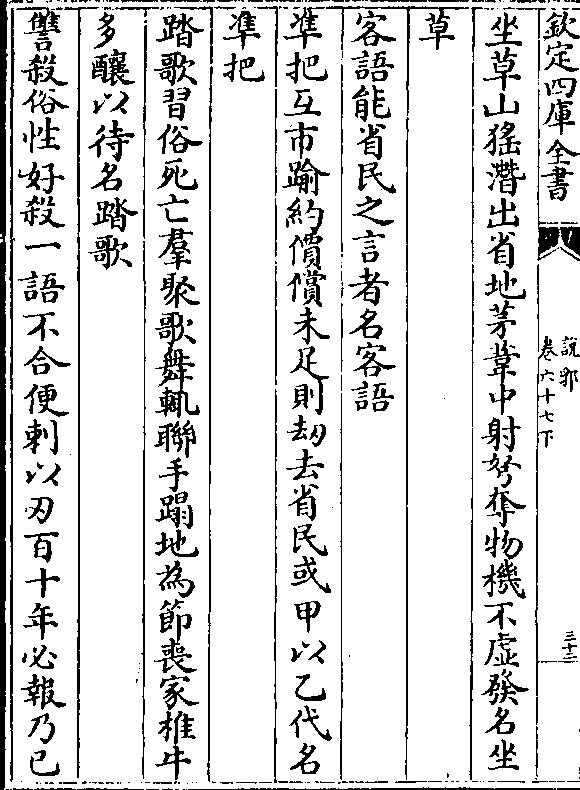 欽定四庫全書
說郛
卷六十七下
三十二
坐草山猺潛出省地茅葦中射弩奪物機不虛發名坐
草
客語能省民之言者名客語
準把互市踰約價償未足則劫去省民或甲以乙代名
準把
踏歌習俗死亡羣聚歌舞輒聯手蹋地為節喪家椎牛
多釀以待名踏歌
讐殺俗性好殺一語不合便刺以刃百十年必報乃已